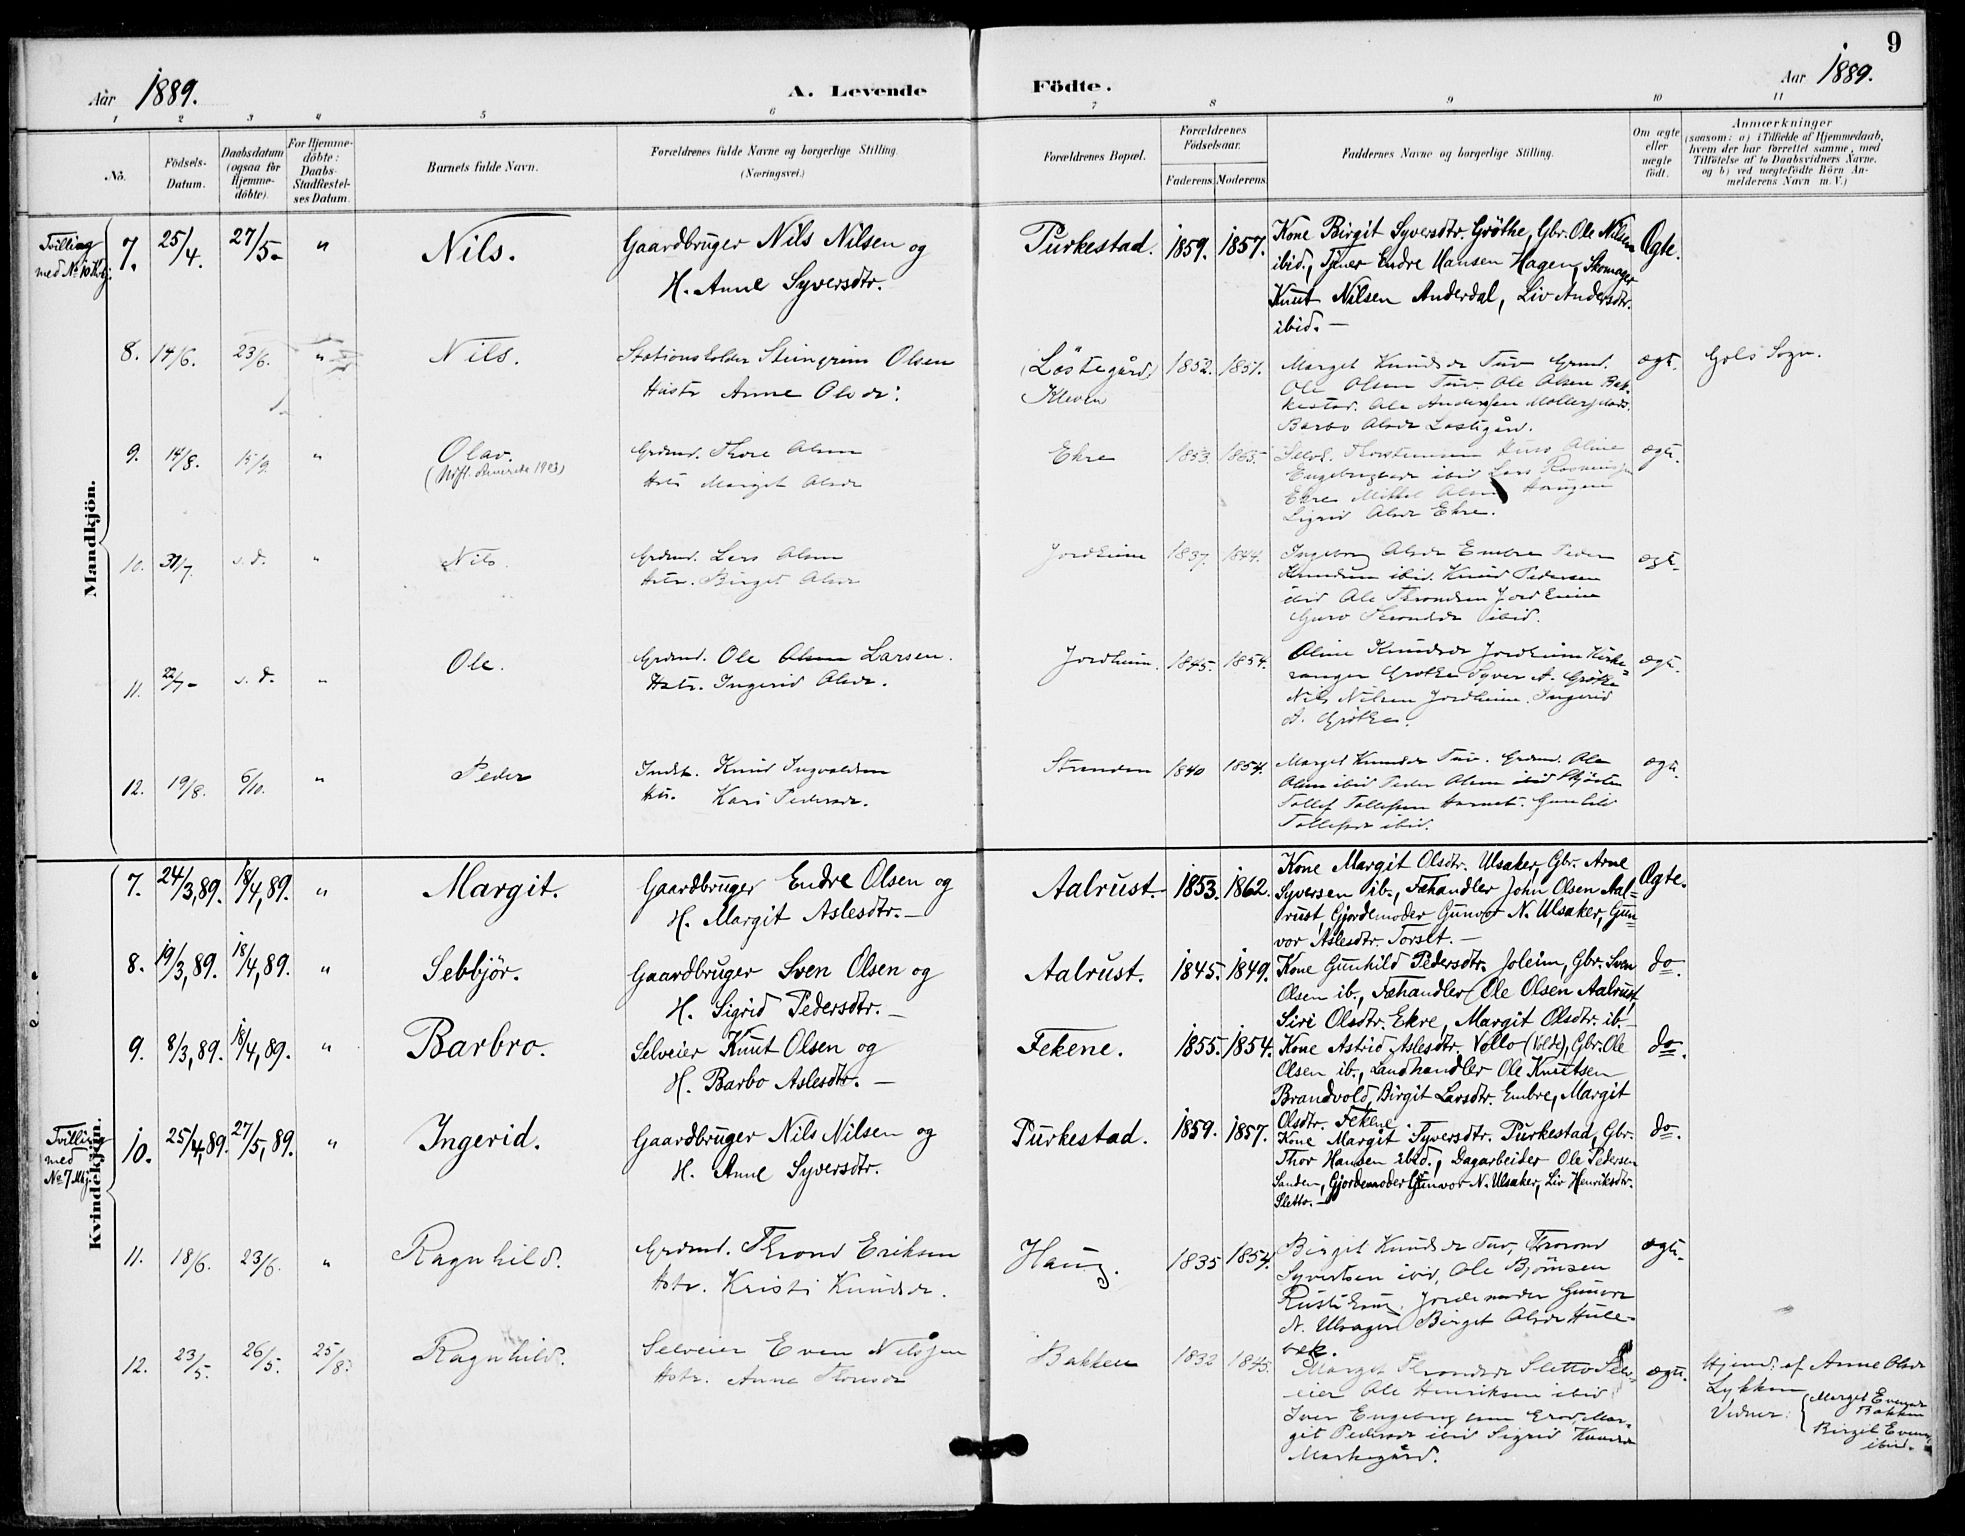 9
Aar 1889.
A. Levende Födte.
Aar 1889.
1 2 3 4 5 6 7 8 9 10 11
No.
Födsels-Datum.
Daabsdatum (ogsaa for Hjemme-döbte).
For Hjemme-döbte: Daabs-Stadfæstel-ses Datum.
Barnets fulde Navn.
Forældrenes fulde Navne og borgerlige Stilling.
(Næringsvei.)
Forældrenes Bopæl.
Forældrenes Födselsaar.
Faderens. Moderens.
Faddernes Navne og borgerlige Stilling.
Om ægte eller uægte födt.
Anmærkninger
(saasom: a) i Tilfælde af Hjemmedaab,
hvem der har forrettet samme, med
Tilföielse af to Daabsvidners Navne.
og b) ved uægtefödte Börn An-
melderens Navn m. V.)
Mandkjön.
Tvilling
med No 10 Kvkj.
7. 25/4. 27/5. " Nils. Gaardbruger Nils Nilsen og
H. Anne Syversdtr.
Purkestad. 1859. 1857.
Kone Birgit Syversdtr. Gröthe, Gbr. Ole Nilsen
ibid., Tjener Endre Hansen Hagen, Skomager
Knut Nilsen Anderdal, Liv Andersdtr.
ibid. —
Ægte.
8. 14/6. 23/6. " Nils. Stationsholder Steingrim Olsen
Hustr Anne Olsdr.
(Löstegård)
Kleven
1852. 1851.
Marget Knudsdr Tuv Grmd.
Ole Olsen Tuv. Ole Olsen Bak-
kestad. Ole Andersen Mollerplads.
Barbo Olsdr Lostegård.
ægt. Gols Sogn.
9. 14/8. 15/9. " Olav.
Grdmd. Thore Olsen
Hstr Margit Olsdr
Ekre 1853. 1865.
Selvei. Thorstensen Huso Oline
Engebrigtsdr ibid Lars
Ekre Mikkel Olsen Haugen
Sigrid Olsdr Ekre.
ægt.
10. 31/7. s. d. " Nils.
Grdmd. Lars Olsen
Hstr. Birget Olsdr
Jordheim 1837. 1844.
Ingeborg Olsdr Embre Peder
Knudsen ibid. Knud Pedersen
ibid Ole Throndsen Jordheim
Guro Throndsdr ibid.
ægt.
11. 22/7 s. d. " Ole.
Grdmd. Ole Olsen Larsen.
Hstr. Ingerid Olsdr.
Jordheim. 1845. 1854.
Oline Knudsdr Jordheim Kirke-
sanger Grothe Syver A. Gröthe
Nils Nilsen Jordheim. Ingerid
A. Gröthe.
ægt.
12. 19/8. 6/10. " Peder
Indst. Knud Ingvaldsen
Hst. Kari Pedersdr.
Stranden 1840 1854.
Marget Knudsdr Tuv. Grdmd. Ole
Olsen ibid Peder Olsen ibid
Tollef Tollefsen. Gunhild
Tollefsdr ibid.
ægt.
Kvindekjön.
7. 24/3,89. 18/4,89. " Margit. Gaardbruger Endre Olsen og
H. Margit Aslesdtr. —
Aalrust. 1853. 1862.
Kone Margit Olsdtr. Ulsaker, Gbr. Arne
Syversen ib., Fæhandler John Olsen Aal-
rust, Gjordemoder Gunvor N. Ulsaker, Gun-
vor Aslesdtr. Torset. —
Ægte.
8. 19/3,89. 18/4,89. " Sebbjör. Gaardbruger Sven Olsen og
H. Sigrid Pedersdtr. —
Aalrust. 1845. 1849.
Kone Gunhild Pedersdtr. Joleim, Gbr. Sven
Olsen ib., Fæhandler Ole Olsen Aalrust,
Siri Olsdtr. Ekre, Margit Olsdtr. ib. —
do.
9. 8/3,89. 18/4,89. " Barbro. Selveier Knut Olsen og
H. Barbo Aslesdtr. —
Fekene. 1855. 1854.
Kone Astrid Aslesdtr. Vollo (Volde), Gbr. Ole
Olsen ib., Landhandler Ole Knutsen
Brandvold, Birgit Larsdtr. Embre, Margit
Olsdtr. Fekene.
do.
Tvilling
med
No 7 Mkj.
10. 25/4,89. 27/5,89. " Ingerid. Gaardbruger Nils Nilsen og
H. Anne Syversdtr.
Purkestad. 1859. 1857.
Kone Margit Syversdtr. Purkestad, Gbr.
Thor Hansen ibid., Dagarbeider Ole Pedersen
Sanden, Gjordemoder Gunvor N. Ulsaker, Liv Henriksdtr.
Sletto. —
do.
11. 18/6. 23/6. " Ragnhild. Grdmd. Thrond Eriksen
Hstr. Kristi Knudsdr.
Haug. 1835 1854.
Birgit Knudsdr Tuv, Thrond
Syvertsen ibid, Ole Björnsen
Jordemoder Gunvor
N. Ulsager Birget Olsdr Hule-
bek.
ægt.
12. 23/5. 26/5. 25/8. Ragnhild. Selveier Even Nilssen
Hstr. Anne Thorsdr
Bakken 1832 1845.
Marget Throndsdr Sletto Selv-
eier Ole Henriksen ibid
Iver Engebregtsen Mar-
git Pedersdr ibid Sigrid Knudsdr
Markegård.
ægt.
Hjemd. af Anne Olsdr
Lykken
Vidner: Marget Evensdr
Bakken
Birgit Evensdr
ibid.